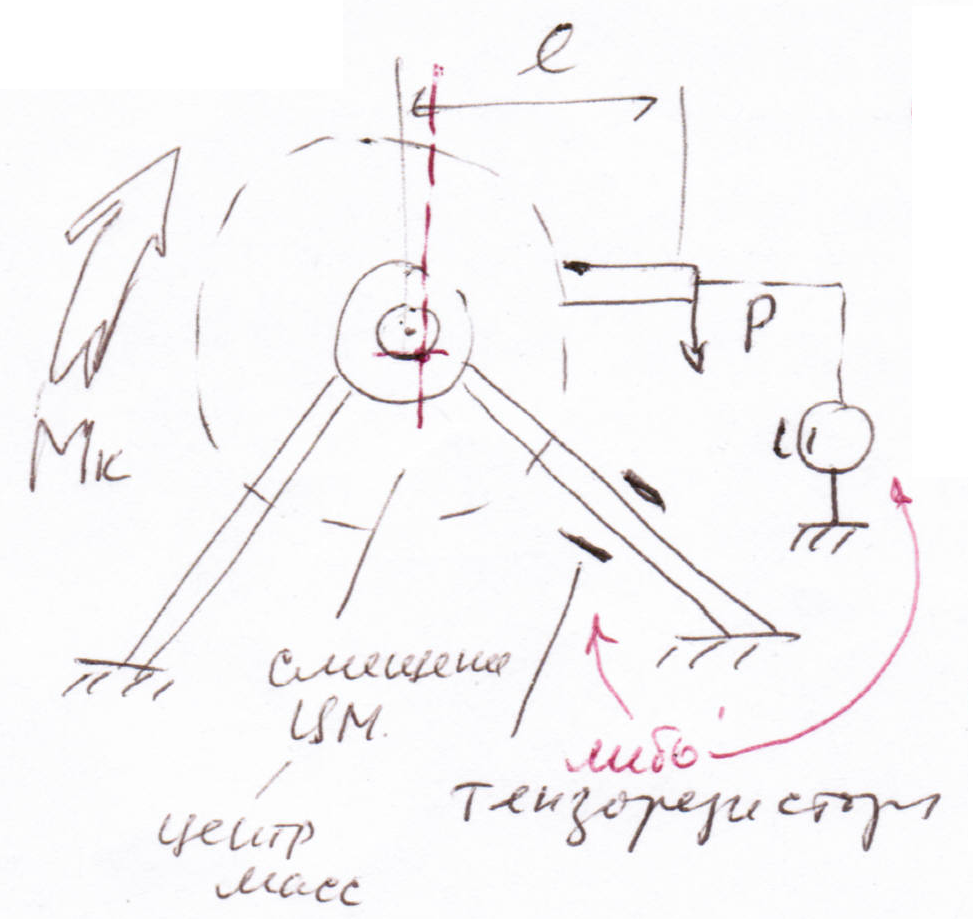 l
P
Мк
смещение
ЦМ.
центр
масс
либо
тензорезисторы